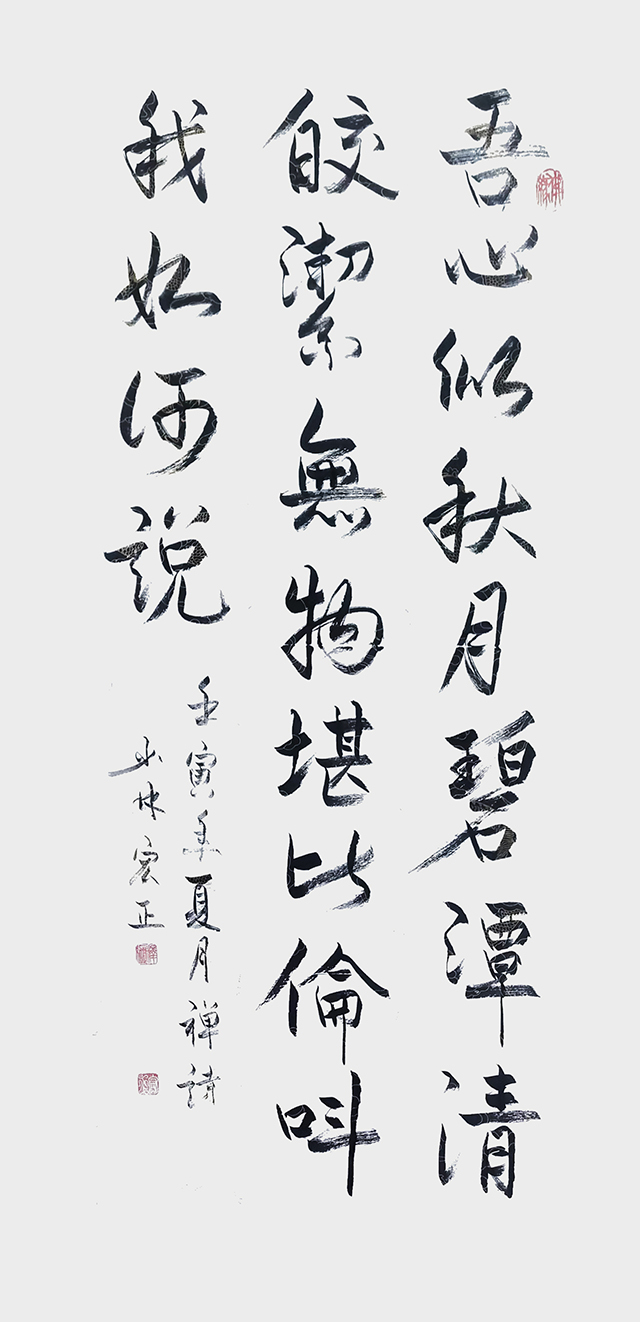 吾心似秋月碧潭清
皎潔無物堪比倫呌
我如何説
壬寅年夏月禅詩
少林宏正